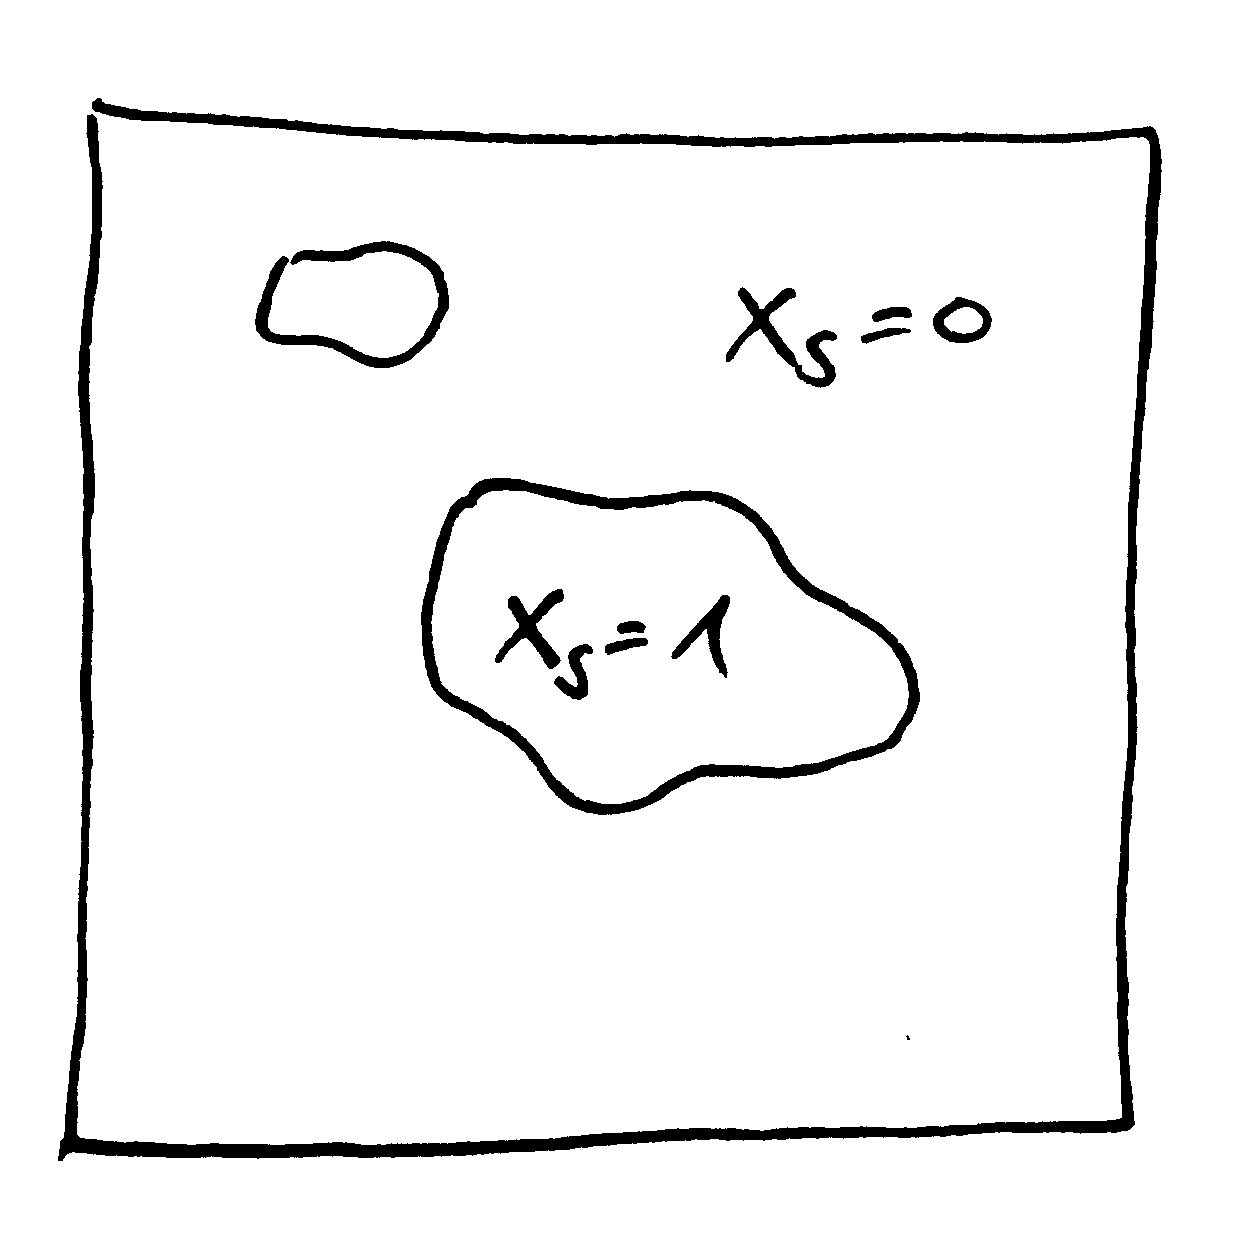 Xs = 0
Xs = 1